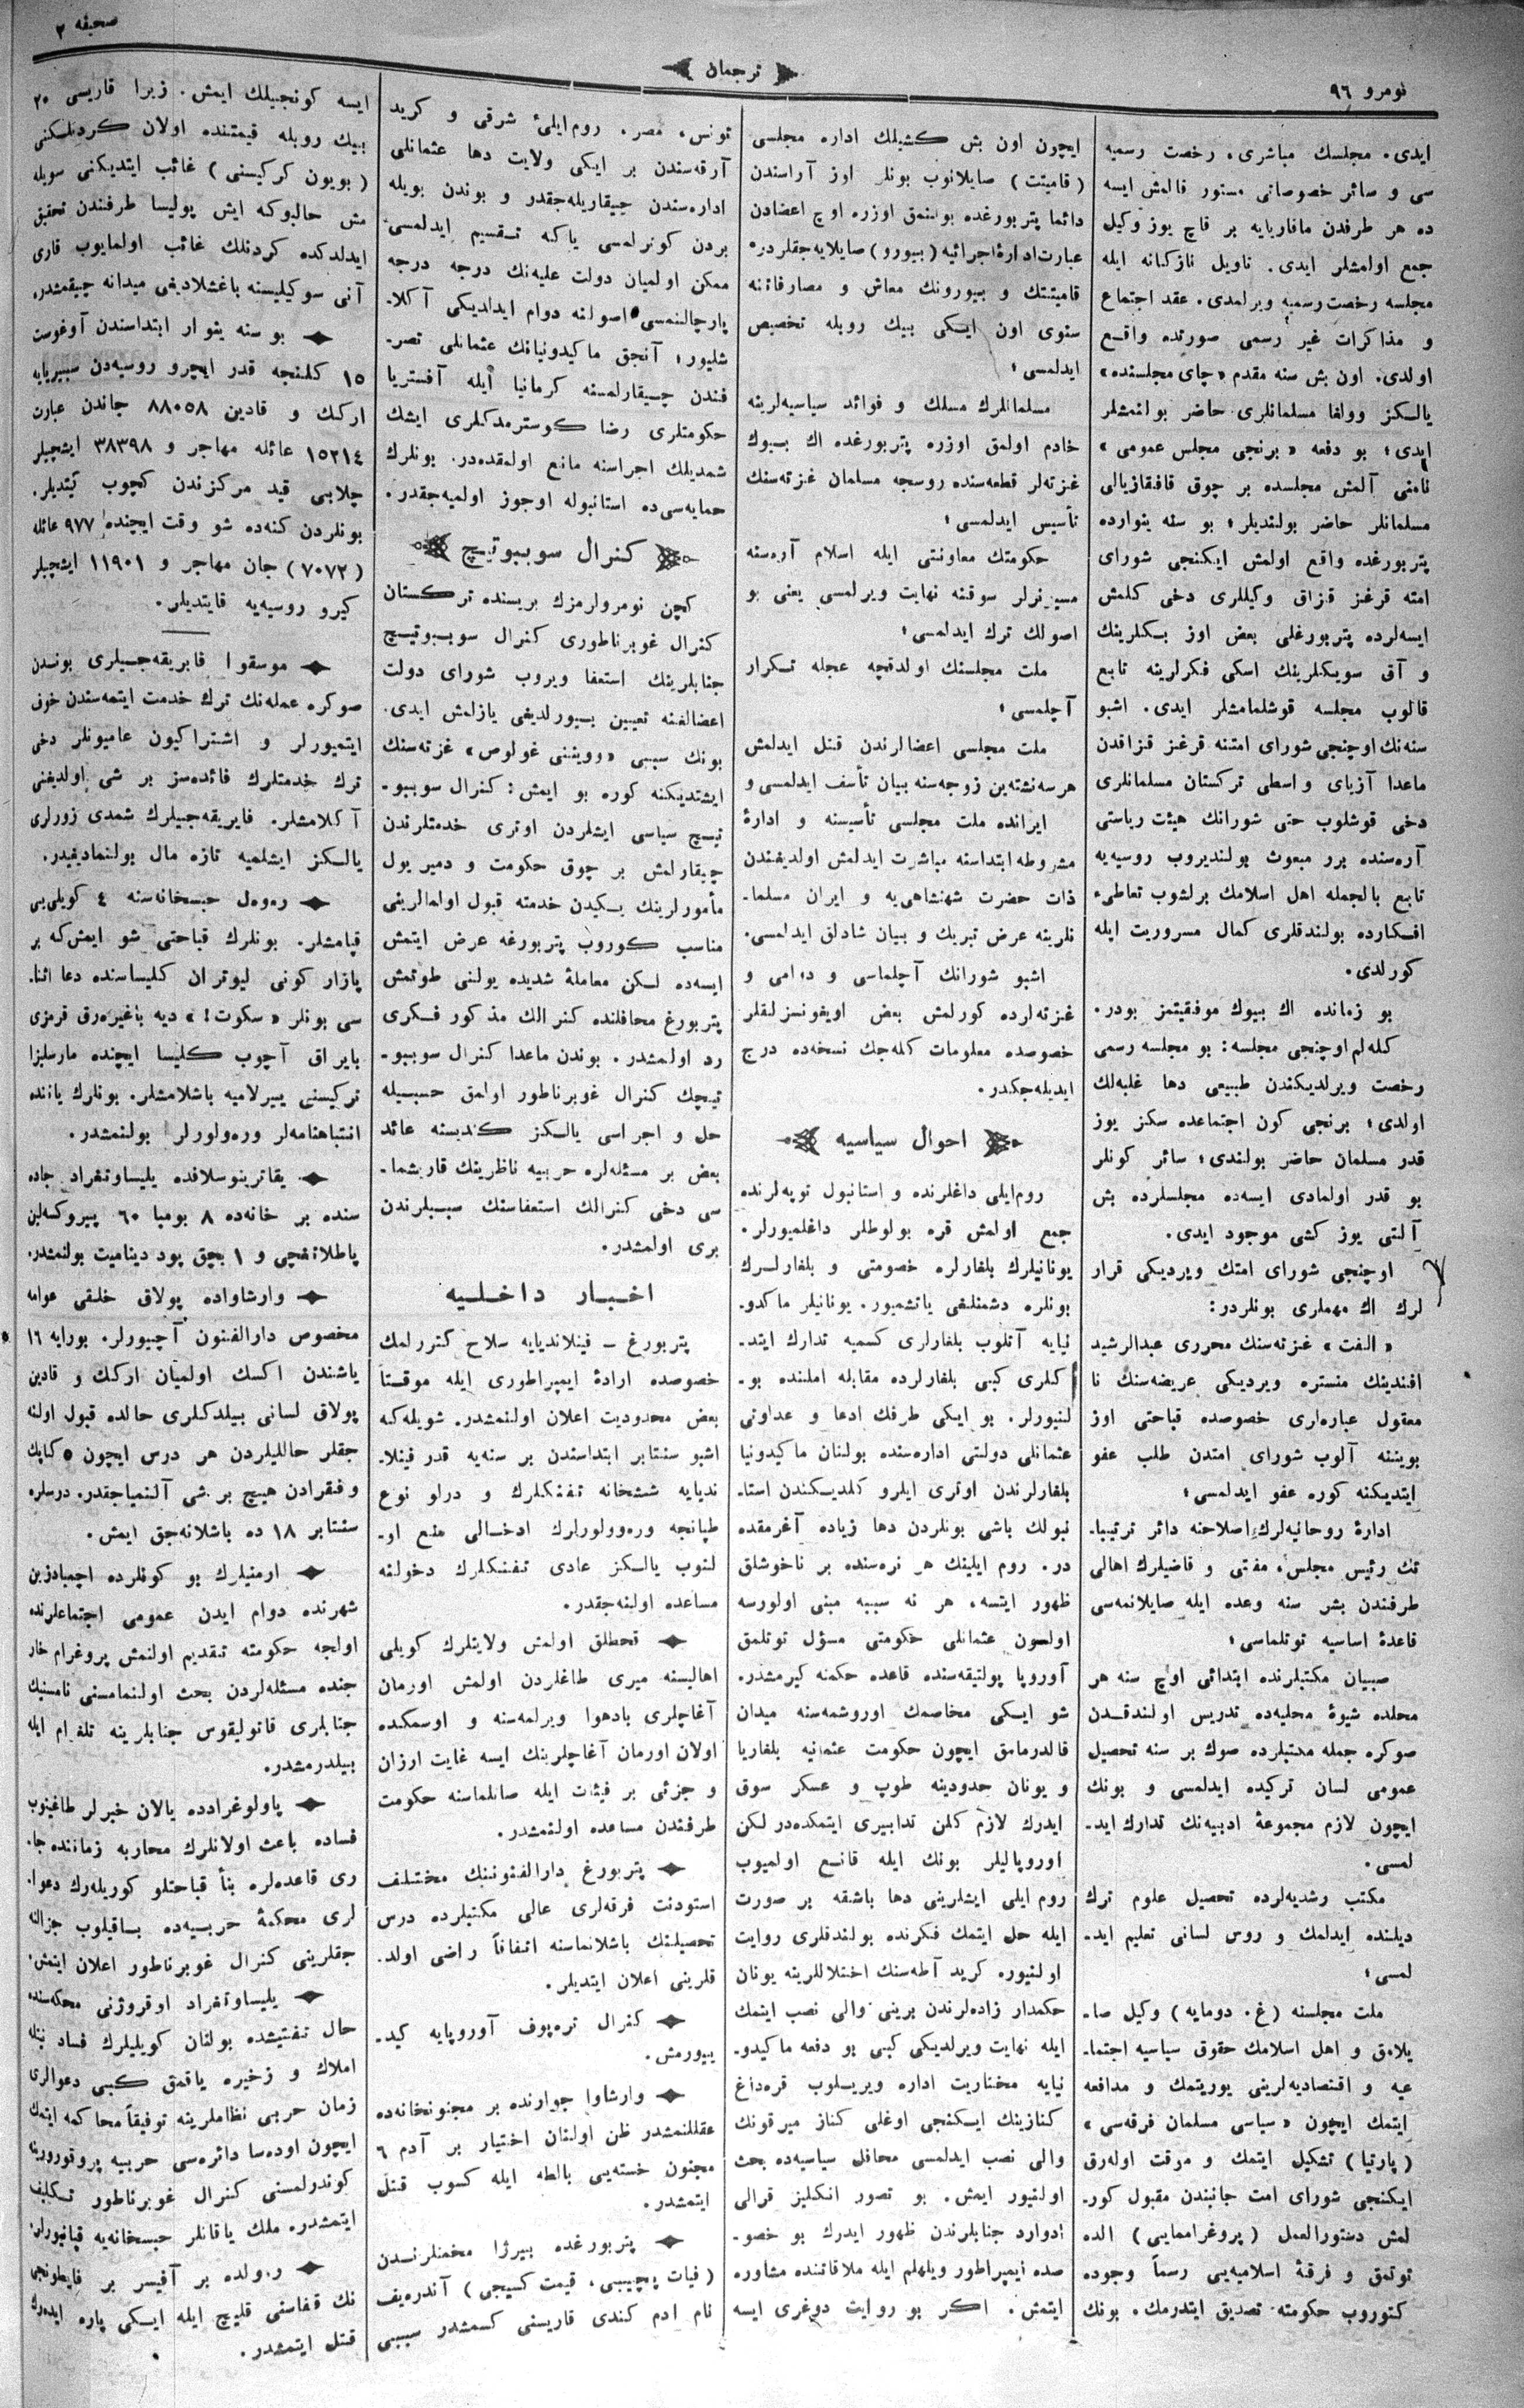 نومرو ٩٦
ترجمان
صحيفه ٢
ايدى. مجلسك مباشرى، رخصت رسميه
سى و سائر خصوصاتى مستور قالمش ايسه
ده هر طرفدن مافاريايه بر قاچ يوز وكيل
جمع اولمشلر ايدى. تاويل نازكانه ايله
مجلسه رخصت رسميه ويرلمدى. عقد اجتماع
و مذاكرات غير رسمى صورتده واقع
اولدى. اون بش سنه مقدم «چاى مجلسنده»
يالكز وولغا مسلمانلرى حاضر بولنمشلر
ايدى؛ بو دفعه «برنجى مجلس عمومى»
نامنى آلمش مجلسده بر چوق قافقازيالى
مسلمانلر حاضر بولنديلر؛ بو سنه ينوارده
پتربورغده واقع اولمش ايكنجى شوراى
امته قرغز قزاق وكيللرى دخى كلمش
ايسه‌لرده پتربورغلى بعض اوز بكلرينك
و آق سويكلرينك اسكى فكرلرينه تابع
قالوب مجلسه قوشلمامشلر ايدى. اشبو
سنه‌نك اوچنجى شوراى امتنه قرغز قزاقدن
ماعدا آزياى واسطى تركستان مسلمانلرى
دخى قوشلوب حتى شورانك هيئت رياستى
آره‌سنده برر مبعوث بولنديروب روسيه‌يه
تابع بالجمله اهل اسلامك برلشوب تعاطىء
افكارده بولندقلرى كمال مسروريت ايله
كورلدى.
بو زمانده اك بيوك موفقيتمز بودر.
كله‌لم اوچنجى مجلسه: بو مجلسه رسمى
رخصت ويرلديكندن طبيعى دها غلبه‌لك
اولدى؛ برنجى كون اجتماعده سكز يوز
قدر مسلمان حاضر بولندى؛ سائر كونلر
بو قدر اولمادى ايسه‌ده مجلسلرده بش
آلتى يوز كشى موجود ايدى.
اوچنجى شوراى امتك ويرديكى قرار
لرك اك مهملرى بونلردر:
«الفت» غزته‌سنك محررى عبدالرشيد
افندينك منستره ويرديكى عريضه‌سنك نا
معقول عباره‌لرى خصوصده قباحتى اوز
بويننه آلوب شوراى امتدن طلب عفو
ايتديكنه كوره عفو ايدلمسى؛
ادارهٔ روحانيه‌لرك اصلاحنه دائر ترتيبا-
تك رئيس مجلس، مفتى و قاضيلرك اهالى
طرفندن بشر سنه وعده ايله صايلانمه‌سى
قاعدهٔ اساسيه توتلماسى؛
صبيان مكتبلرنده ابتدائى اوچ سنه هر
محلده شيوهٔ محليه‌ده تدريس اولندقدن
صوكره جمله مكتبلرده صوك بر سنه تحصيل
عمومى لسان تركيده ايدلمسى و بونك
ايچون لازم مجموعهٔ ادبيه‌نك تدارك ايد-
لمسى.
مكتب رشديه‌لرده تحصيل علوم ترك
ديلنده ايدلمك و روس لسانى تعليم ايد-
لمسى؛
ملت مجلسنه (غ. دومايه) وكيل صا-
يلامق و اهل اسلامك حقوق سياسيه اجتما-
عيه و اقتصاديه‌لرينى يوريتمك و مدافعه
ايتمك ايچون «سياسى مسلمان فرقه‌سى»
(پارتيا) تشكيل ايتمك و موقت اوله‌رق
ايكنجى شوراى امت جانبندن مقبول كور-
لمش دستورالعمل (پروغراممايى) الده
توتمق و فرقهٔ اسلاميه‌يى رسماً وجوده
كتوروب حكومته تصديق ايتدرمك. بونك
ايچون اون بش كشيلك اداره مجلسى
(قاميتت) صايلانوب بونلر اوز آراسندن
دائما پتربورغده بولنمق اوزره اوچ اعضادن
عبارت ادارهٔ اجرائيه (بيورو) صايلايه‌جقلردر.
قاميتتك و بيورونك معاش و مصارفاتنه
سنوى اون ايكى بيك روبله تخصيص
ايدلمسى؛
مسلمانلرك مسلك و فوائد سياسيه‌لرينه
خادم اولمق اوزره پتربورغده اك بيوك
غزته‌لر قطعه‌سنده روسجه مسلمان غزته‌سنك
تأسيس ايدلمسى؛
حكومتك معاونتى ايله اسلام آره‌سنه
مسيونرلر سوقنه نهايت ويرلمسى يعنى بو
اصولك ترك ايدلمسى؛
ملت مجلسنك اولدقچه عجله تكرار
آچلمسى؛
ملت مجلسى اعضالرندن قتل ايدلمش
هرسه‌نشته‌ين زوجه‌سنه بيان تأسف ايدلمسى و
ايرانده ملت مجلسى تأسيسنه و ادارهٔ
مشروطه ابتداسنه مباشرت ايدلمش اولديغندن
ذات حضرت شهنشاهى‌يه و ايران مسلما-
نلرينه عرض تبريك و بيان شادلق ايدلمسى.
اشبو شورانك آچلماسى و دوامى و
غزته‌لرده كورلمش بعض اويغونسزلقلر
خصوصده معلومات كله‌جك نسخه‌ده درج
ايديله‌جكدر.
احوال سياسيه
روم‌ايلى داغلرنده و استانبول توپه‌لرنده
جمع اولمش قره بولوطلر داغلميورلر.
يونانيلرك بلغارلره خصومتى و بلغارلرك
بونلره دشمنلغى ياتشميور. يونانيلر ماكدو-
نيايه آتلوب بلغارلرى كسميه تدارك ايتد-
كلرى كبى بلغارلرده مقابله املنده بو-
لنيورلر. بو ايكى طرفك ادعا و عداوتى
عثمانلى دولتى اداره‌سنده بولنان ماكيدونيا
بلغارلرندن اوترى ايلرو كلديكندن استا-
نبولك باشى بونلردن دها زياده آغرمقده
در. روم ايلينك هر نره‌سنده بر ناخوشلق
ظهور ايتسه، هر نه سببه مبنى اولورسه
اولسون عثمانلى حكومتى مسؤل توتلمق
آوروپا پولتيقه‌سنده قاعده حكمنه كيرمشدر.
شو ايكى مخاصمك اوروشمه‌سنه ميدان
قالدرمامق ايچون حكومت عثمانيه بلغاريا
و يونان حدودينه طوپ و عسكر سوق
ايدرك لازم كلن تدابيرى ايتمكده‌در لكن
اوروپاليلر بونك ايله قانع اولميوب
روم ايلى ايشلرينى دها باشقه بر صورت
ايله حل ايتمك فكرنده بولندقلرى روايت
اولنيور. كريد آطه‌سنك اختلاللرينه يونان
حكمدار زاده‌لرندن برينى والى نصب ايتمك
ايله نهايت ويرلديكى كبى بو دفعه ماكيدو-
نيايه مختاريت اداره ويريلوب قره‌داغ
كنازينك ايكنجى اوغلى كناز ميرقونك
والى نصب ايدلمسى محافل سياسيه‌ده بحث
اولنيور ايمش. بو تصور انكليز قرالى
ادوارد جنابلرندن ظهور ايدرك بو خصو-
صده ايمپراطور ويلهلم ايله ملاقاتنده مشاوره
ايتمش. اكر بو روايت دوغرى ايسه
تونس، مصر، روم‌ايلىٔ شرقى و كريد
آرقه‌سندن بر ايكى ولايت دها عثمانلى
اداره‌سندن چيقاريله‌جقدر و بوندن بويله
بردن كوترلمسى ياكه تقسيم ايدلمسى
ممكن اولميان دولت عليه‌نك درجه درجه
پارچالنمسى اصولنه دوام ايدلديكى آكلا-
شليور؛ آنجق ماكيدونيانك عثمانلى تصر-
فندن چيقارلمسنه كرمانيا ايله آفستريا
حكومتلرى رضا كوسترمدكلرى ايشك
شمديلك اجراسنه مانع اولمقده‌در. بونلرك
حمايه‌سى‌ده استانبوله اوجوز اولميه‌جقدر.
كنرال سوببوتيچ
كچن نومرولرمزك بريسنده تركستان
كنرال غوبرناطورى كنرال سوببوتيچ
جنابلرينك استعفا ويروب شوراى دولت
اعضالغنه تعيين بيورلديغى يازلمش ايدى.
بونك سببى «وويننى غولوص» غزته‌سنك
ايشتديكنه كوره بو ايمش: كنرال سوببو-
تيچ سياسى ايشلردن اوترى خدمتلرندن
چيقارلمش بر چوق حكومت و دمير يول
مأمورلرينك يكيدن خدمته قبول اولمالرينى
مناسب كوروب پتربورغه عرض ايتمش
ايسه‌ده لكن معاملهٔ شديده يولنى طوتمش
پتربورغ محافلنده كنرالك مذكور فكرى
رد اولمشدر. بوندن ماعدا كنرال سوببو-
تيچك كنرال غوبرناطور اولمق حسبيله
حل و اجراسى يالكز كنديسنه عائد
بعض بر مسئله‌لره حربيه ناظرينك قاريشما-
سى دخى كنرالك استعفاسنك سببلرندن
برى اولمشدر.
اخبار داخليه
پتربورغ — فينلانديايه سلاح كتررلمك
خصوصده ارادهٔ ايمپراطورى ايله موقتاً
بعض محدوديت اعلان اولنمشدر. شويله‌كه
اشبو سنتابر ابتداسندن بر سنه‌يه قدر فينلا-
نديايه ششخانه تفنكلرك و درلو نوع
طپانچه وره‌وولورلرك ادخالى منع او-
لنوب يالكز عادى تفنكلرك دخولنه
مساعده اولنه‌جقدر.
قحطلق اولمش ولايتلرك كويلى
اهاليسنه ميرى طاغلردن اولمش اورمان
آغاچلرى بادهوا ويرلمه‌سنه و اوسمكده
اولان اورمان آغاچلرينك ايسه غايت ارزان
و جزئى بر فيئات ايله صاتلماسنه حكومت
طرفندن مساعده اولنمشدر.
پتربورغ دارالفنوننك مختلف
استودنت فرقه‌لرى عالى مكتبلرده درس
تحصيلنك باشلانماسنه اتفاقاً راضى اولد-
قلرينى اعلان ايتديلر.
كنرال تره‌پوف آوروپايه كيد-
ييورمش.
وارشاوا جوارنده بر مجنونخانه‌ده
عقللنمشدر ظن اولنان اختيار بر آدم ٦
مجنون خسته‌يى بالطه ايله كسوب قتل
ايتمشدر.
پتربورغده بيرژا مخمنلرندن
(فيات پچيبى، قيمت كسيجى) آندره‌يف
نام ادم كندى قاريسنى كسمشدر سببى
ايسه كونجيلك ايمش. زيرا قاريسى ٢٠
بيك روبله قيمتنده اولان كردنلكنى
(بويون كركيسنى) غائب ايتديكنى سويله
مش حالبوكه ايش پوليسا طرفندن تحقيق
ايدلدكده كردنلك غائب اولمايوب قارى
آنى سوكيليسنه باغشلاديغى ميدانه چيقمشدر.
بو سنه ينوار ابتداسندن آوغوست
١٥ كلنجه قدر ايچرو روسيه‌دن سيبريايه
ارك و قادين ٨٨٠٥٨ جاندن عبارت
١٥٢١٤ عائله مهاجر و ٣٨٣٩٨ ايشچيلر
چلابى قيد مركزندن كچوب كيتديلر.
بونلردن كنه‌ده شو وقت ايچنده ٩٧٧ عائله
(٧٠٧٢) جان مهاجر و ١١٩٠١ ايشچيلر
كيرو روسيه‌يه قايتديلر.
موسقوا فابريقه‌جيلرى بوندن
صوكره عمله‌نك ترك خدمت ايتمه‌سندن خوف
ايتميورلر و اشتراكيون عاميونلر دخى
ترك خدمتلرك فائده‌سز بر شى اولديغنى
آكلامشلر. فابريقه‌جيلرك شمدى زورلرى
يالكز ايشلميه تازه مال بولنماديغيدر.
ره‌وه‌ل حبسخانه‌سنه ٤ كويلى‌يى
قپامشلر. بونلرك قباحتى شو ايمش‌كه بر
پازار كونى ليوتران كليساسنده دعا اثنا-
سى بونلر «سكوت!» ديه باغيره‌رق قرمزى
بايراق آچوب كليسا ايچنده مارسليزا
تركيسنى ييرلاميه باشلامشلر. بونلرك ياننده
انتباهنامه‌لر وره‌ولورلر بولنمشدر.
يقاتربنوسلافده يليساوتغراد جاده
سنده بر خانه‌ده ٨ بومبا ٦٠ پيروكسه‌لين
پاطلاتغچى و ١ بچق پود ديناميت بولنمشدر.
وارشاواده پولاق خلقى عوامه
مخصوص دارالفنون آچيورلر. بورايه ١٦
ياشندن اكسك اولميان ارك و قادين
پولاق لسانى بيلدكلرى حالده قبول اولنه
جقلر حالليلردن هر درس ايچون ٥ كاپك
و فقرادن هيچ بر شى آلنمياجقدر. درسلره
سنتابر ١٨ ده باشلانه‌جق ايمش.
ارمنيلرك بو كونلرده اچميادزين
شهرنده دوام ايدن عمومى اجتماعلرنده
اولجه حكومته تقديم اولنمش پروغرام خار
جنده مسئله‌لردن بحث اولنمامسنى نامسنيك
جنابلرى قاتوليقوس جنابلرينه تلغرام ايله
بيلدرمشدر.
پاولوغرادده يالان خبرلر طاغيتوب
فساده باعث اولانلرك محاربه زماننده جا-
رى قاعده‌لره بنأ قباحتلو كوريله‌رك دعوا-
لرى محكمهٔ حربيه‌ده باقيلوب جزالنه
جقلرينى كنرال غوبرناطور اعلان ايتمش.
يليساوتغراد اوقروژنى محكمه‌سنده
حال تفتيشده بولنان كويليلرك فساد نيتله
املاك و زخيره ياقمق كبى دعوالرى
زمان حربى نظاملرينه توفيقاً محاكمه ايتمك
ايچون اوده‌سا دائره‌سى حربيه پروقورورينه
كوندرلمسنى كنرال غوبرناطور تكليف
ايتمشدر. ملك ياقانلر حبسخانه‌يه قپانيورلر.
ره‌ولده بر آفيسر بر فايطونجى
نك قفاسنى قليچ ايله ايكى پاره ايده‌رك
قتل ايتمشدر.